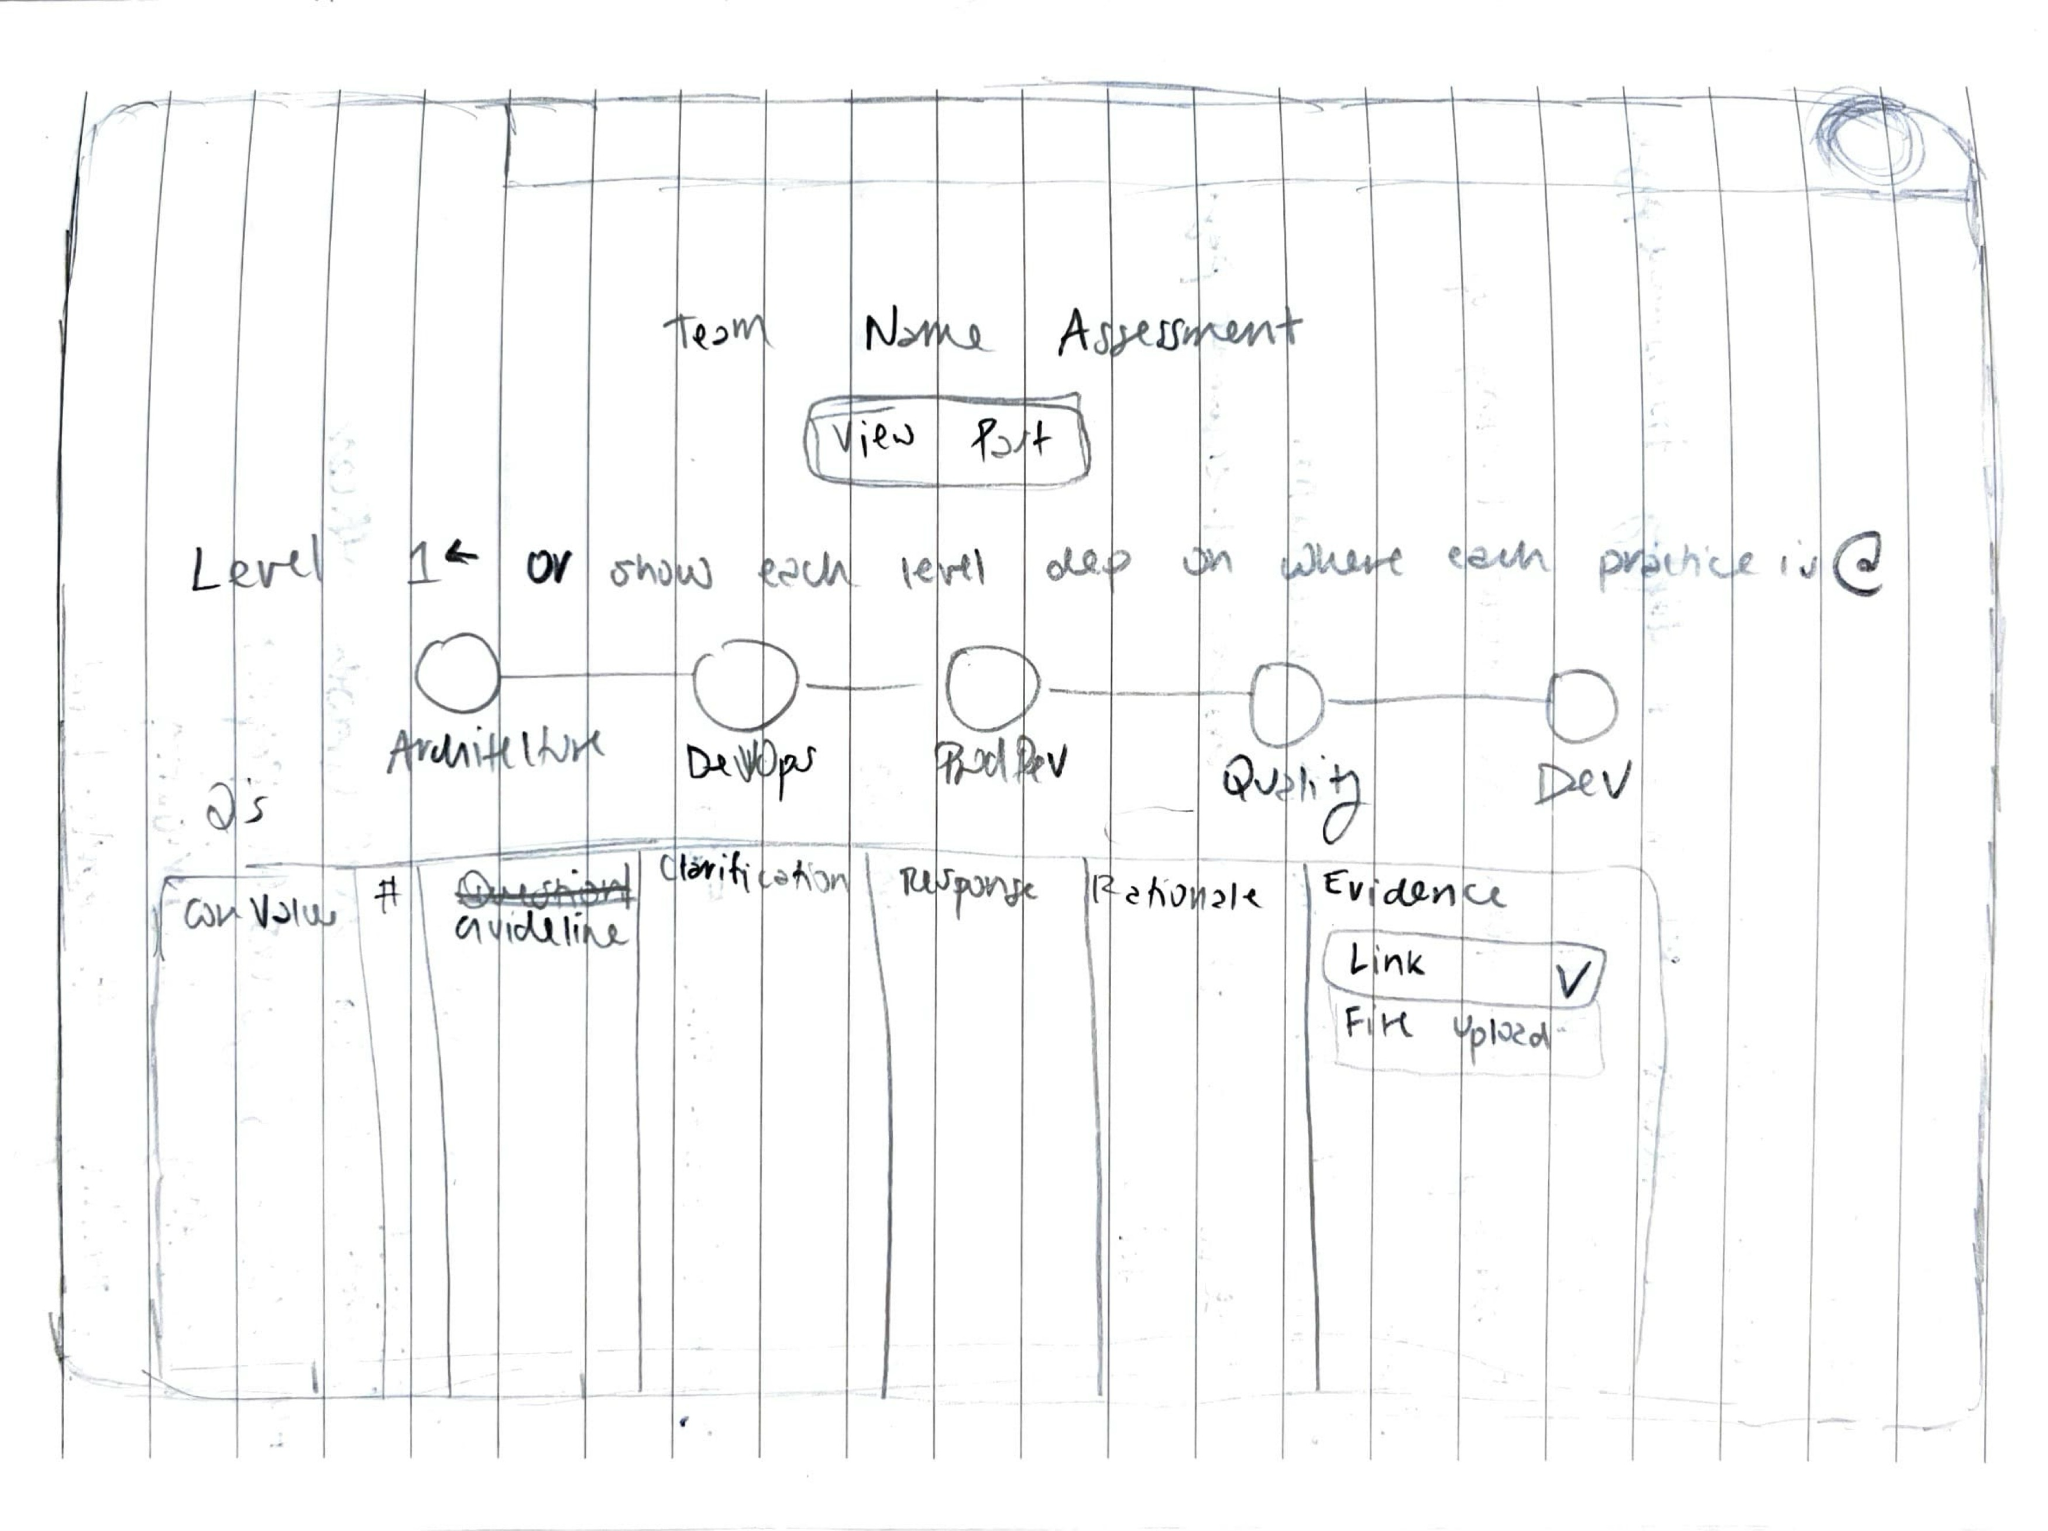 Team Name Assessment
View Past
Level 1 ← or show each level dep on where each practice is @
Architecture DevOps Prod Dev Quality Dev
Q's
Core Value # Question Clarification Response Rationale Evidence
Guideline
Link V
File Upload